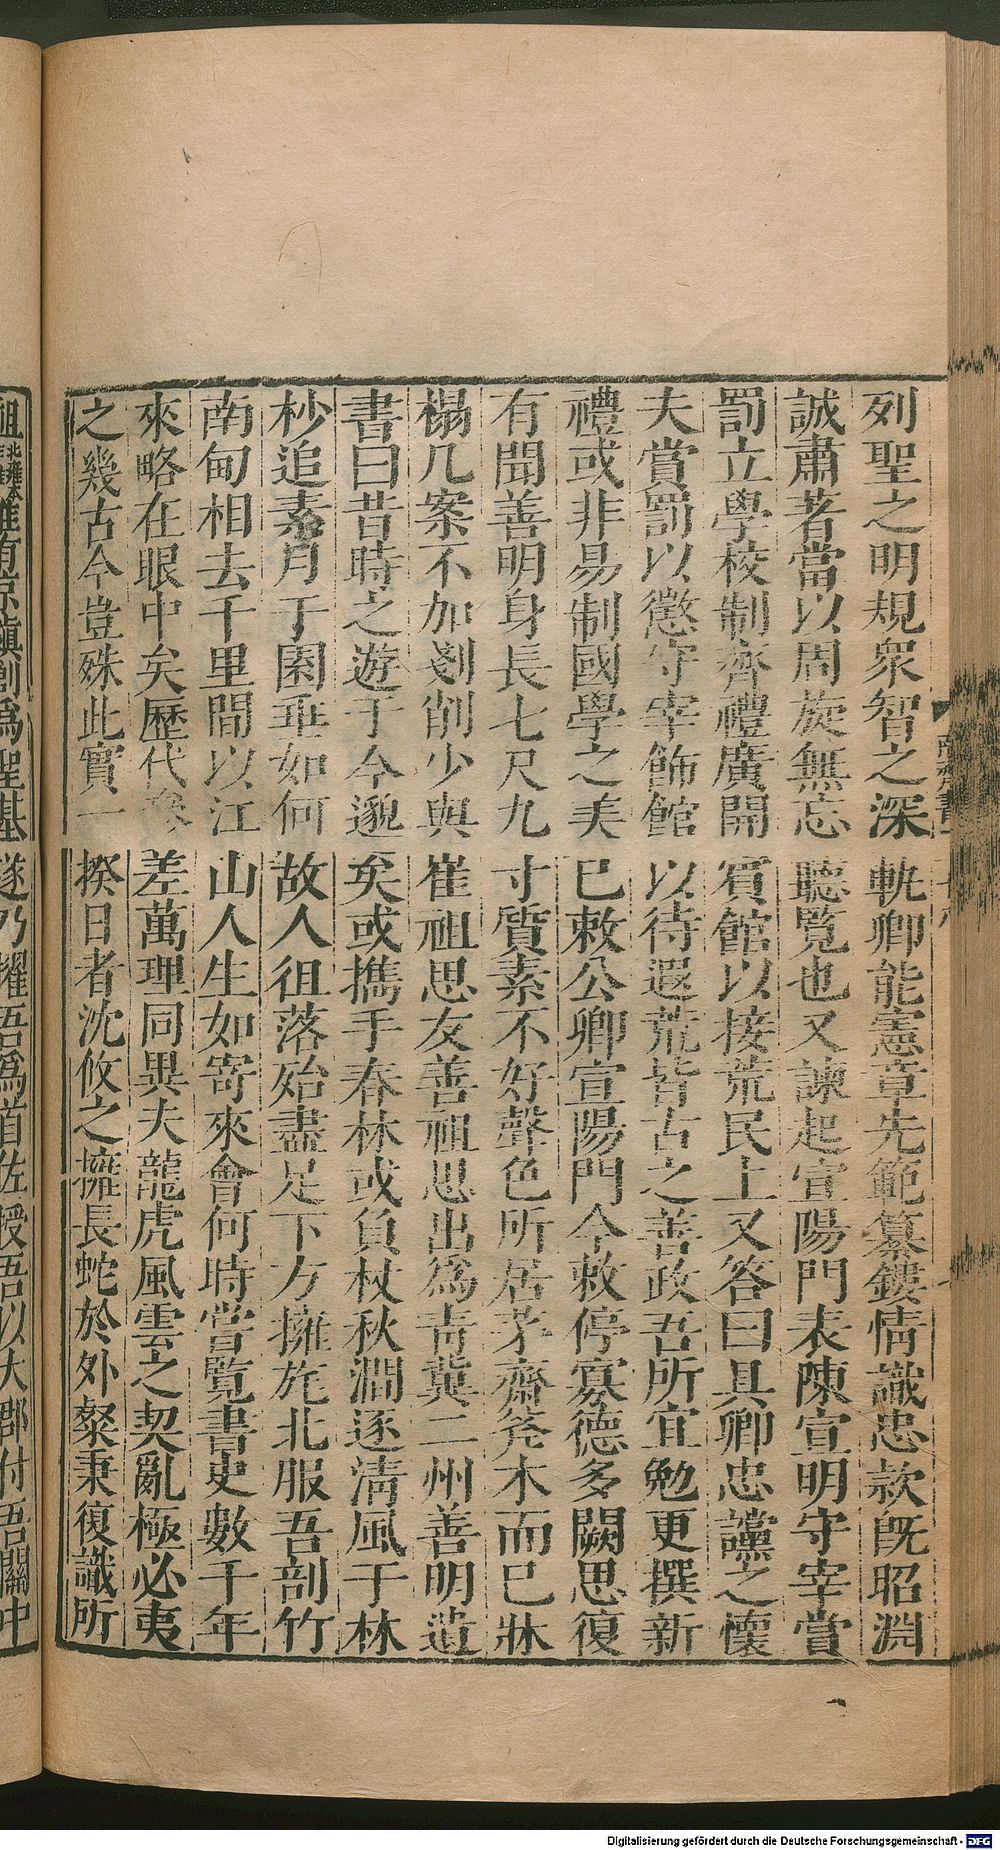 列聖之明規衆智之深軌卿能憲章先範纂鏤情識忠款旣昭淵
誠肅著當以周旋無忘聽覽也又諫起宣陽門表陳宣明守宰賞
罰立學校制齊禮廣開賓館以接荒民上又答曰具卿忠讜之懷
夫賞罰以懲守宰飾館以待遐荒皆古之善政吾所宜勉更撰新
禮或非易制國學之美已敕公卿宣陽門今敕停寡德多闕思復
有聞善明身長七尺九寸質素不好聲色所居茅齋斧木而已牀
榻几案不加剗削少與崔祖思友善祖思出爲靑冀二州善明遺
書曰昔時之遊于今邈矣或攜手春林或負杖秋澗逐淸風于林
杪追素月于園垂如何故人徂落殆盡足下方擁旄北服吾剖竹
南甸相去千里間以江山人生如寄來會何時嘗覽書史數千年
來略在眼中矣歷代參差萬理同異夫龍虎風雲之契亂極必夷
之幾古今豈殊此實一揆日者沈攸之擁長蛇於外粲秉復識所
祖 惟有京鎭創爲聖基遂乃擢吾爲首佐授吾以大郡付吾關中
Digitalisierung gefördert durch die Deutsche Forschungsgemeinschaft - DFG